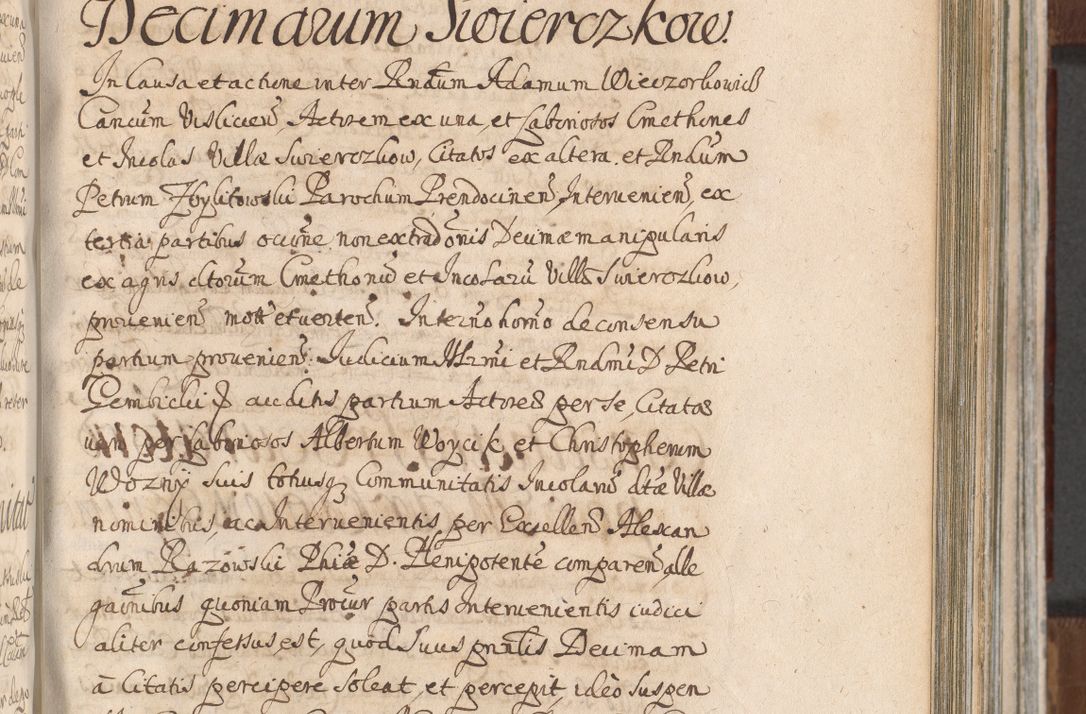 Decimarum Swierczkow.
In Causa et actione inter Rndum Adamum Wieczorkowicz
Cancum Vislicien, Actorem ex una, et Laboriosos Cmethones
et Incolas Villæ Swierczkow, Citatos ex altera, et Rndum
Petrum Zbylitowski Parochum Prendocinen, Intervenien, ex
tertia partibus occne non extradonis Decimæ manipularis
ex agris dtorum Cmethonu et Incolaru Villæ Swierczkow,
provenien mott et verten. In termo horno de consensu
partium provenien. Iudicium Illrmi et Rndmi D. Petri
Gembicki auditis partium Actores per se, Citatos
vero per Laboriosos Albertum Woycik, et Christopherum
Wozny suis totiusq Communitatis Incolaru dtæ Villæ
nominibus, ac Intervenientis per Excellen Alexan
drum Razowski Phiæ D. Plenipotente comparen alle
gaonibus quoniam Procur partis Intervenientis iudici
aliter confessus est, quod suus prnlis Decimam
à Citatis percipere soleat, et percepit, ideo suspen